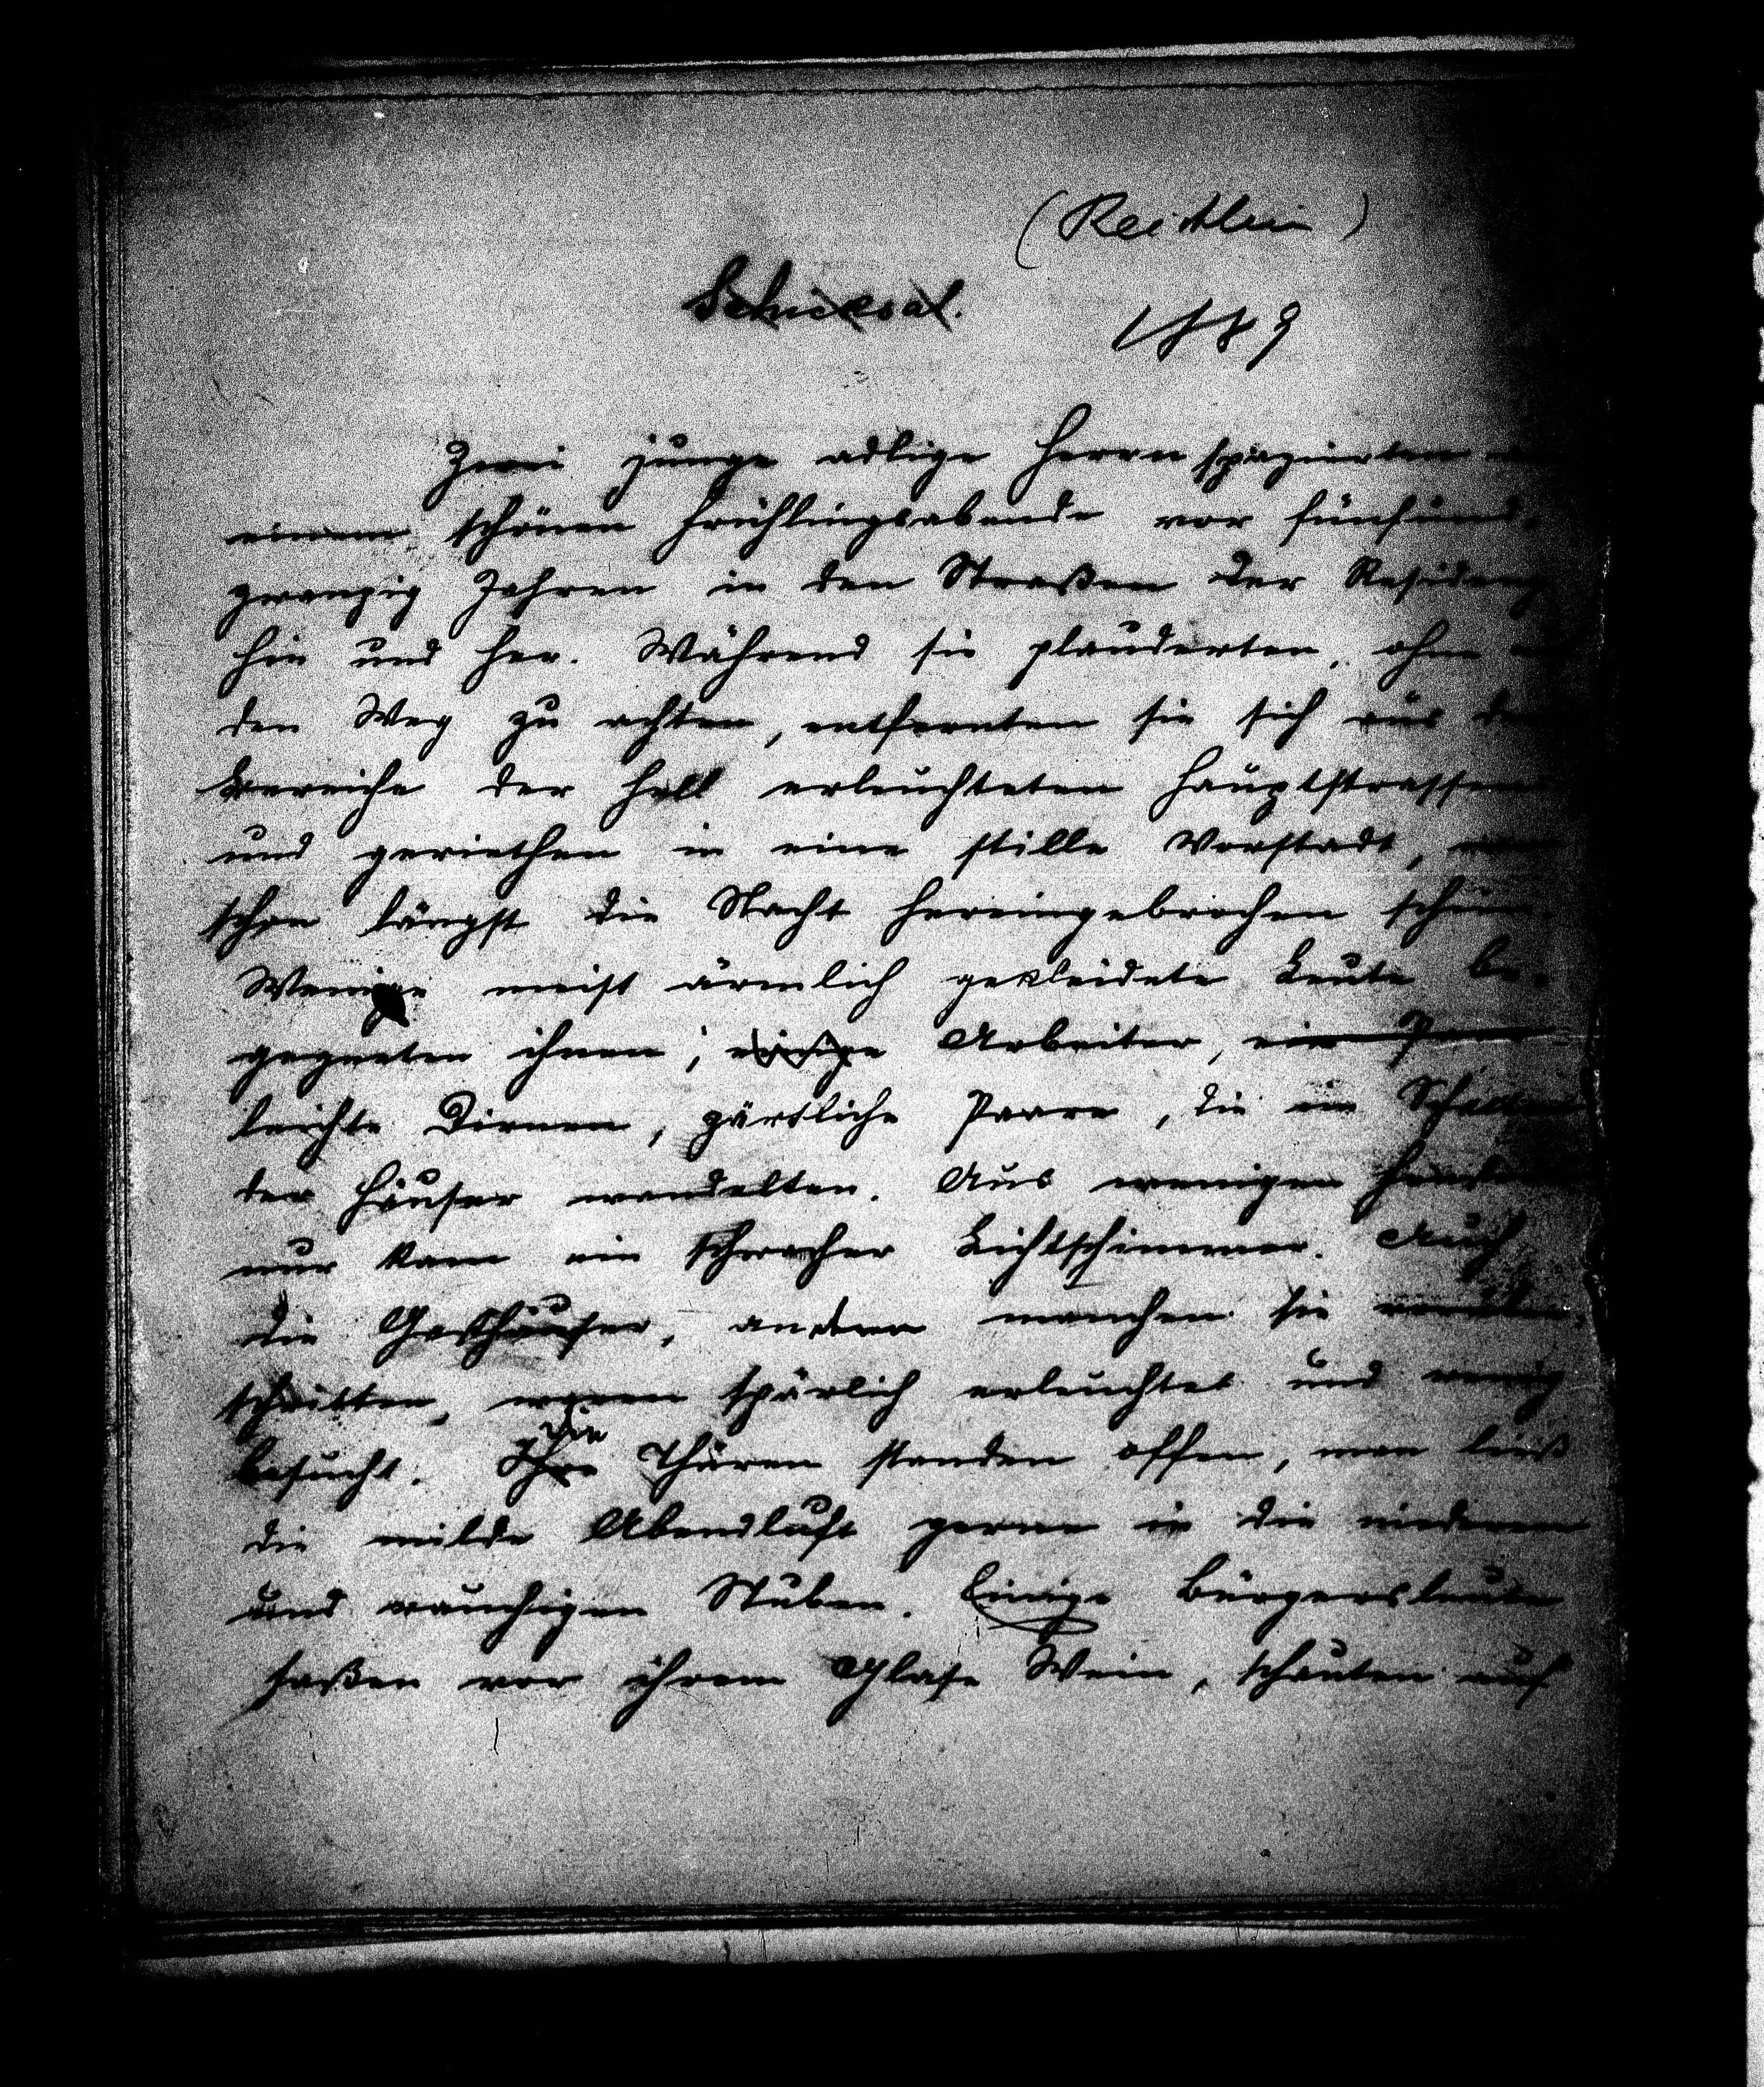 (Reichlin)
Schicksal.
1889
Zwei junge adlige Herrn spazierten
einem schönen Frühlingsabende vor fünfund-
zwanzig Jahren in den Straßen der Residenz
hin und her. Während sie plauderten, ohne
den Weg zu achten, entfernten sie sich aus dem
Bereiche der hell erleuchteten Hauptstrassen
und geriethen in eine stille Vorstadt, wo
schon längst die Nacht hereingebrochen schien.
Wenige meist ärmlich gekleidete Leute be-
gegneten ihnen; einige Arbeiter, ein Paar
leichte Dirnen, zärtliche Paare, die im Schatten
der Häuser wandelten. Aus wenigen Fenstern
nur kam ein schwacher Lichtschimmer. Auch
die Gasthäuser, an denen manchen sie vorüber-
schritten, waren spärlich erleuchtet und wenig
besucht. Ihre die Thüren standen offen, man ließ
die milde Abendluft gerne in die niederen
und rauchigen Stuben. Einige Bürgersleute
saßen vor ihrem Glase Wein, schauten auf